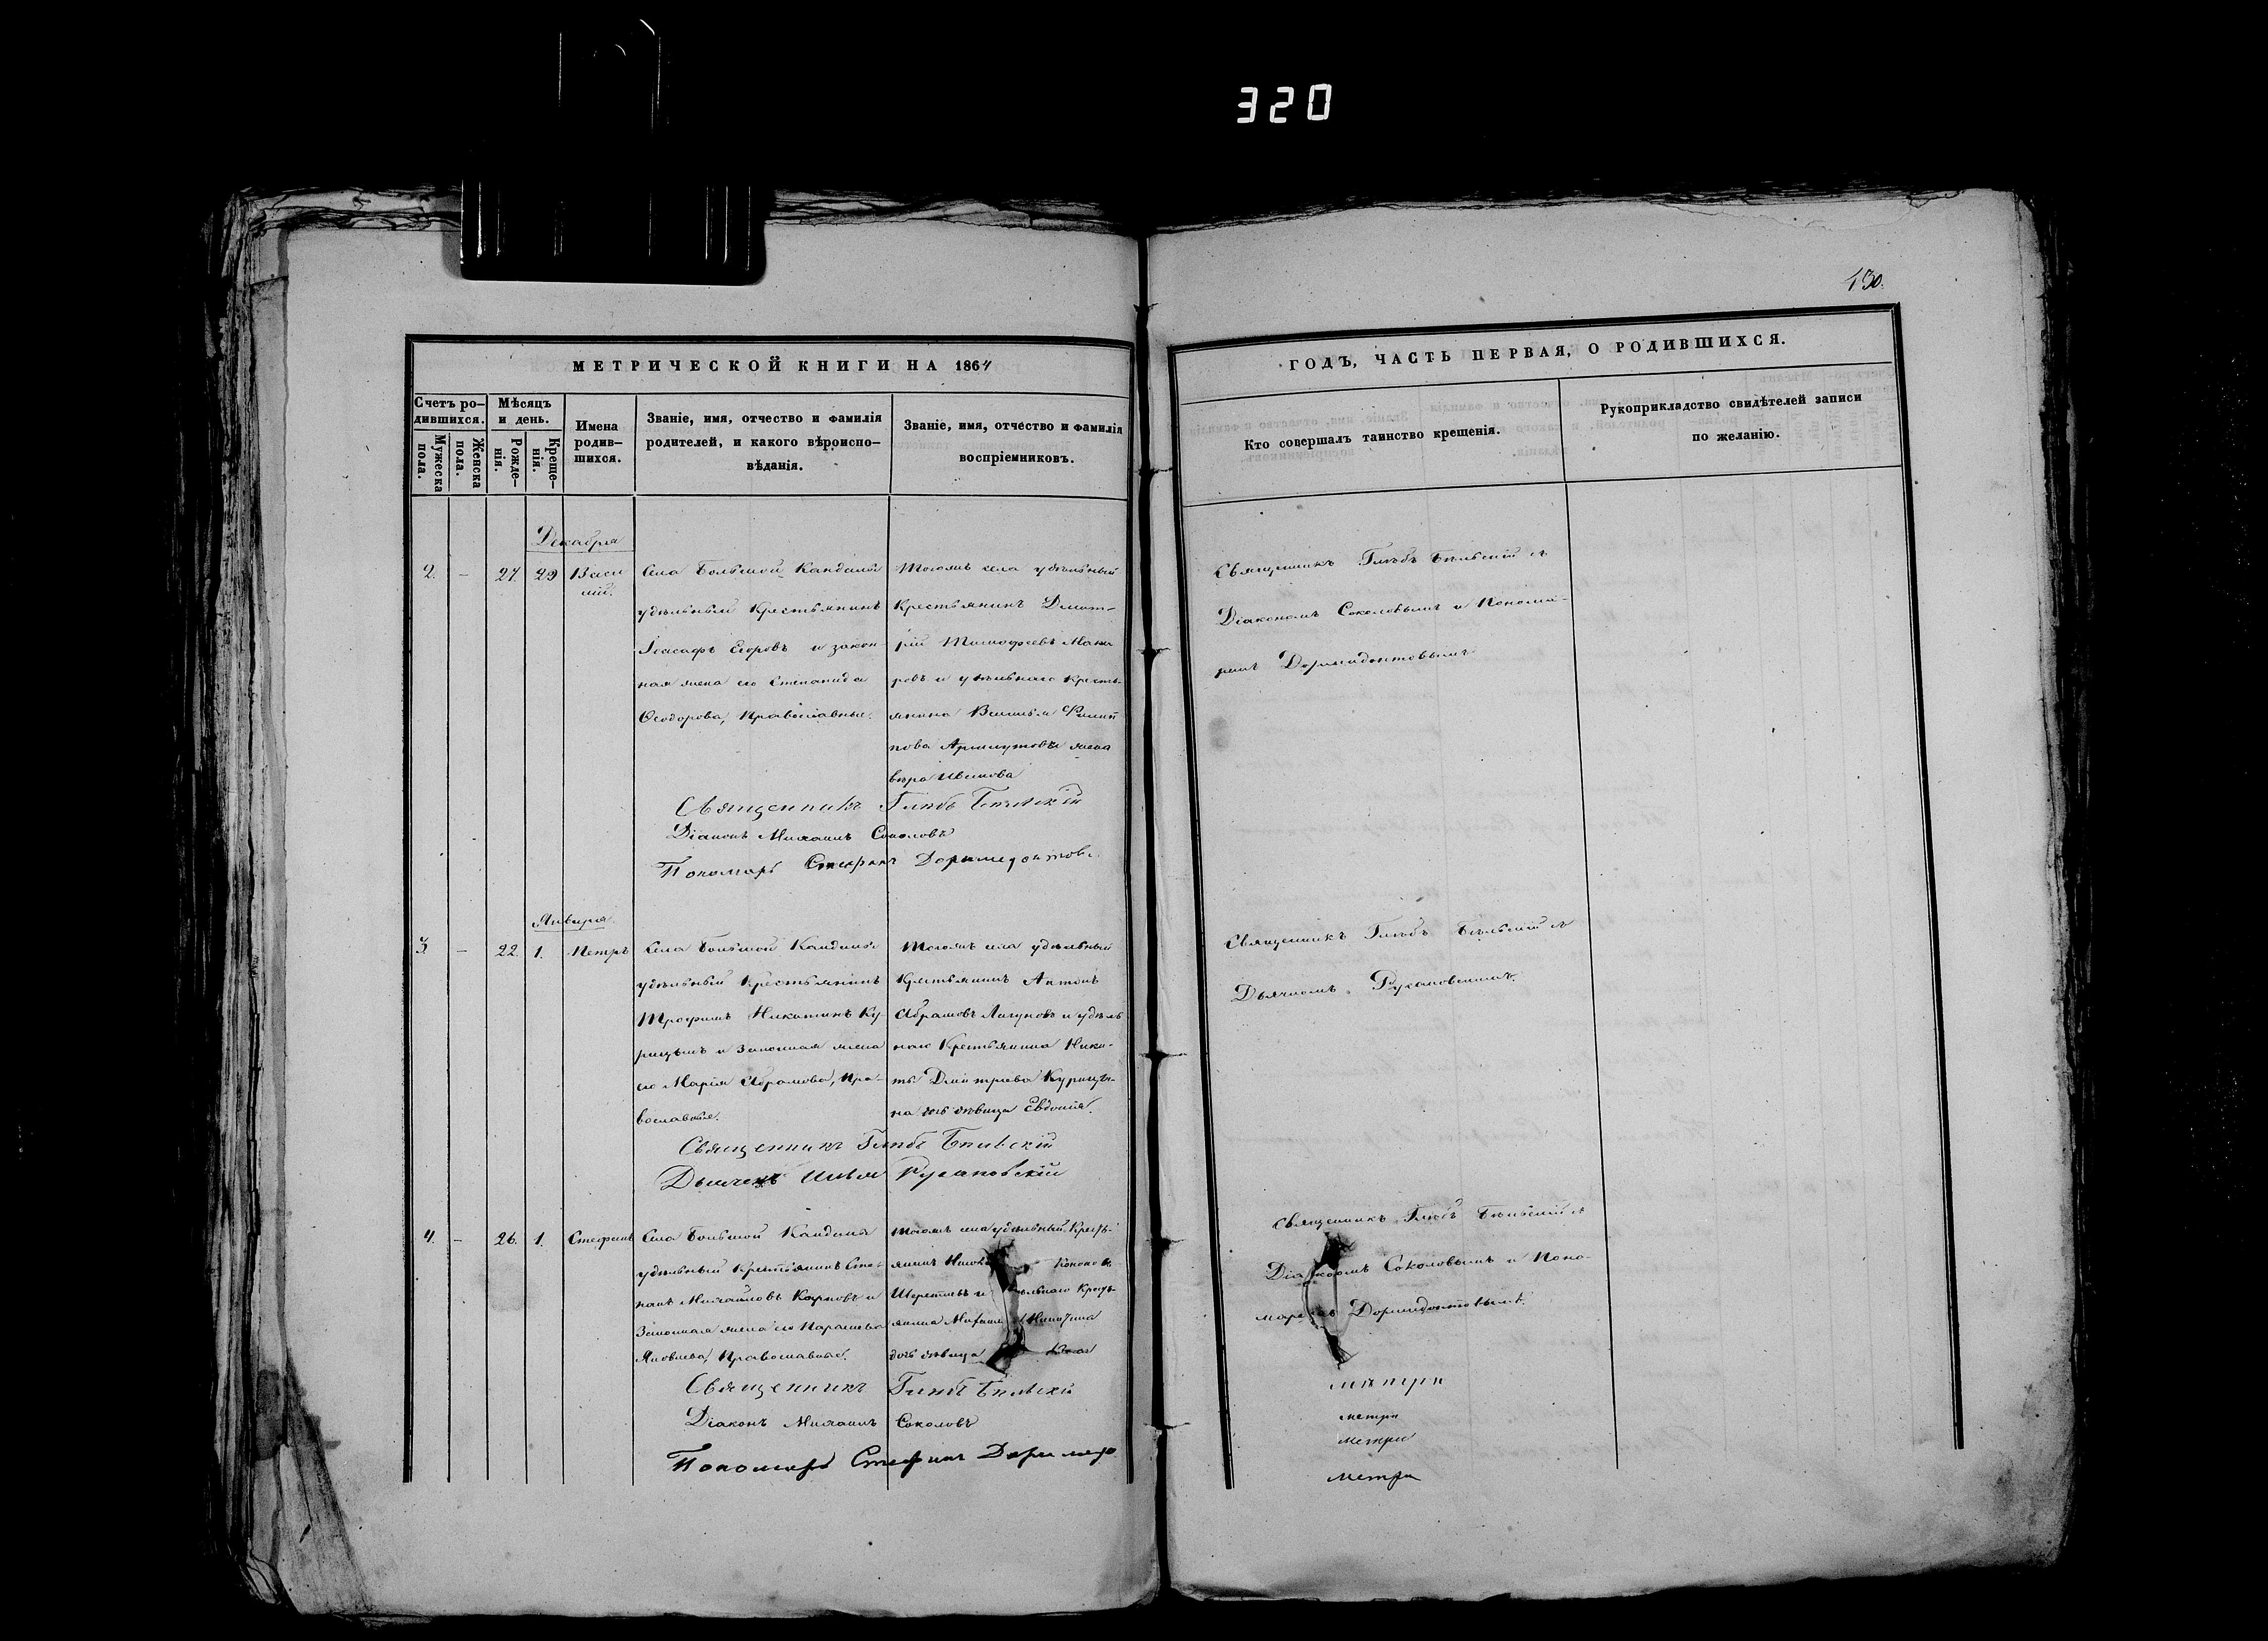 320
130.
МЕТРИЧЕСКОЙ КНИГИ НА 1864
ГОДЪ, ЧАСТЬ ПЕРВАЯ, О РОДИВШИХСЯ.
Счетъ ро-
дившихся.
Мужеска
пола.
Женска
пола.
Мѣсяцъ
и день.
Рожде-
нія.
Креще-
нія.
Имена
родив-
шихся.
Званіе, имя, отчество и фамилія
родителей, и какого вѣроиспо-
вѣданія.
Званіе, имя, отчество и фамилія
воспріемниковъ.
Кто совершалъ таинство крещенія.
Рукоприкладство свидѣтелей записи
по желанію.
Декабря
2. - 27. 29 Васи
лій.
Села Большой Кандалы
удѣльный Крестьянинъ
Іоасафъ Егоровъ и закон
ная жена его Степанида
Ѳеодорова, Православные.
Тогожъ села удѣльный
Крестьянинъ Дмит-
рій Тимофеевъ
ровъ и удѣльнаго Кресть-
янина Василья Филип
пова жена
Вѣра Иванова
Священникъ Глѣбъ Бѣльскій съ
Діакономъ Соколовымъ и Понома-
ремъ Доримидонтовымъ.
Священникъ Глѣбъ Бѣльскій
Діаконъ Михаилъ Соколовъ
Пономарь Стефанъ Доримедонтовъ.
Января.
3. - 22. 1. Петръ
Села Большой Кандалы
удѣльный Крестьянинъ
Трофимъ Никитинъ Ку-
рицынъ и Законная жена
его Марія Абрамова, Пра-
вославные.
Тогожъ села удѣльный
Крестьянинъ Антонъ
Абрамовъ и удѣль
наго Крестьянина Ники-
ты Дмитріева Курицы-
на дочь дѣвица Евдокія.
Священникъ Глѣбъ Бѣльскій съ
Дьячкомъ Рузановскимъ.
Священникъ Глѣбъ Бѣльскій
Дьячекъ Илья Рузановскій
4. - 26. 1. Стефанъ
Села Большой Кандалы
удѣльный Крестьянинъ Сте-
панъ Михайловъ Карповъ и
Законная жена его Парасковья
Яковлева, Православные.
Тогожъ села удѣльный Кресть-
янинъ Кононовъ
и Кресть-
янина Никитина
дочь дѣвица
Священникъ Глѣбъ Бѣльскій съ
Діакономъ Соколовымъ и Поно-
маремъ Доримидонтовымъ.
Священникъ Глѣбъ Бѣльскій
Діаконъ Михаилъ Соколовъ
Пономарь Стефанъ Доримед
метри
метри
метри
метри